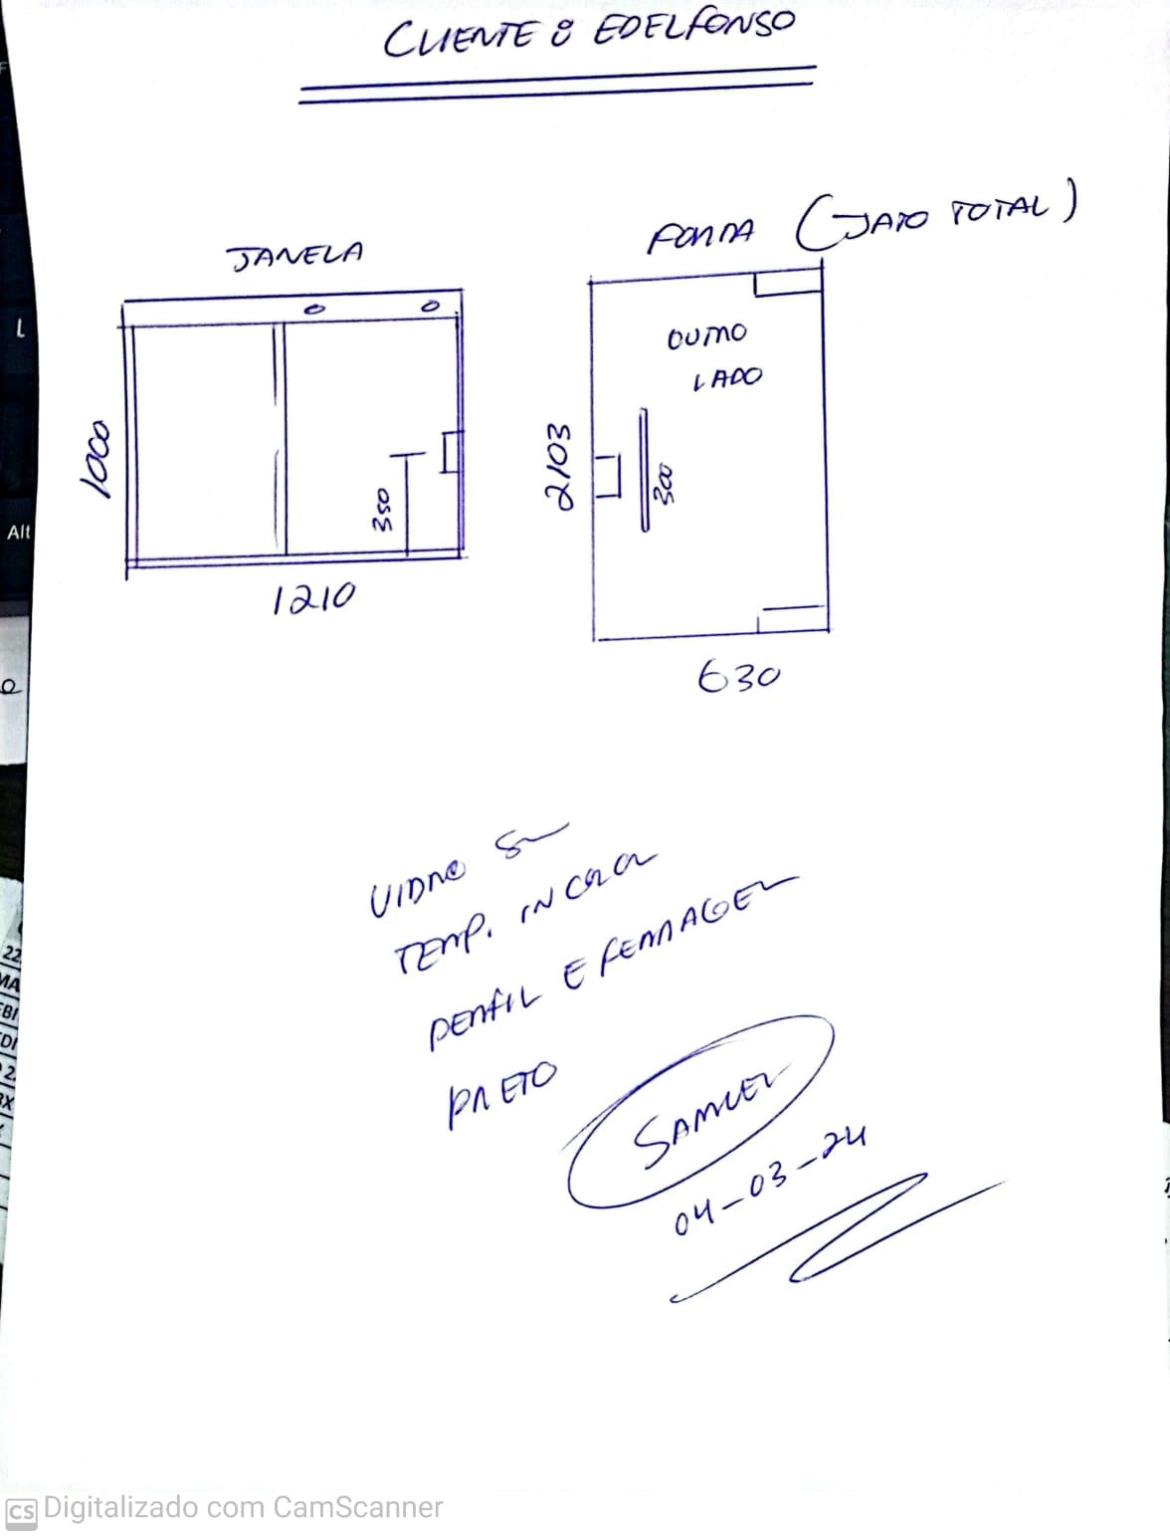 CLIENTE : EDELFONSO
JANELA
PORTA (JATO TOTAL)
1000
350
1210
OUTRO
LADO
2103
300
630
VIDRO 8m
TEMP. INCOLOR
PERFIL E FERRAGEM
PRETO
SAMUEL
04-03-24
L
Alt
22
MA
CS Digitalizado com CamScanner